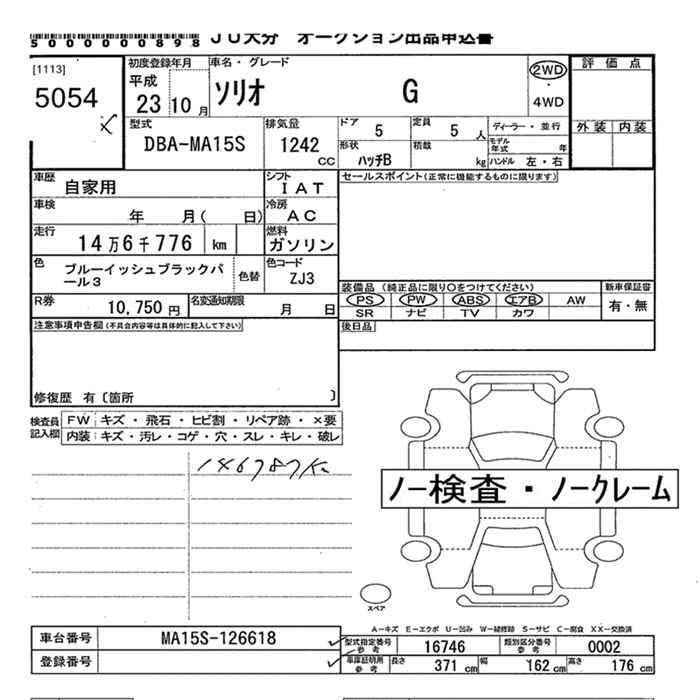 5000000898 JU大分 オークション出品申込書
[1113]
5054
初度登録年月
平成
23 10月
車名・グレード
ソリオ G
2WD
・
4WD
評価点
外装 内装
型式
DBA-MA15S
排気量
1242 cc
ドア 5
定員 5 人
ディーラー・並行
形状 ハッチB
積載 kg
モデル年式 年
ハンドル 左・右
車歴 自家用
シフト IAT
セールスポイント(正常に機能するものに限ります)
車検 年 月( 日)
冷房 AC
走行 14万6千776 km
燃料 ガソリン
色 ブルーイッシュブラックパール3
色替
色コード ZJ3
装備品(純正品に限り○をつけてください)
新車保証書
PS PW ABS エアB AW
有・無
SR ナビ TV カワ
R券 10,750円
名変通知期限 月 日
後日品
注意事項申告欄(不具合内容等は具体的に記入して下さい)
修復歴 有〔箇所 〕
検査員記入欄
FW キズ・飛石・ヒビ割・リペア跡・×要
内装 キズ・汚レ・コゲ・穴・スレ・キレ・破レ
146787K
ノー検査・ノークレーム
スペア
A-キズ E-エクボ U-凹み W-補修跡 S-サビ C-腐食 XX-交換済
車台番号 MA15S-126618
型式指定番号参考 16746
類別区分番号参考 0002
登録番号
車庫証明用参考 長さ 371 cm 幅 162 cm 高さ 176 cm